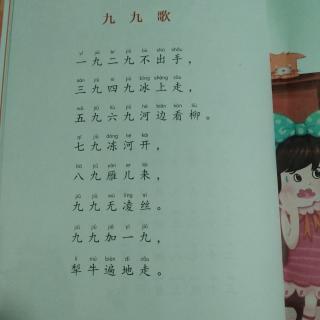 九九歌
yī jiǔ èr jiǔ bù chū shǒu
一九二九不出手，
sān jiǔ sì jiǔ bīng shàng zǒu
三九四九冰上走，
wǔ jiǔ liù jiǔ hé biān kàn liǔ
五九六九河边看柳。
qī jiǔ dòng hé kāi
七九冻河开，
bā jiǔ yàn ér lái
八九雁儿来，
jiǔ jiǔ wú líng sī
九九无凌丝。
jiǔ jiǔ jiā yì jiǔ
九九加一九，
lí niú biàn dì zǒu
犁牛遍地走。